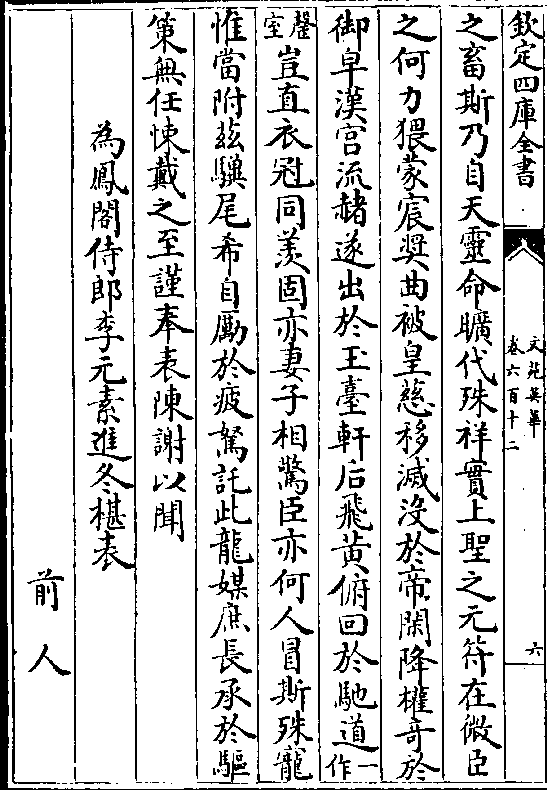 欽定四庫全書
文苑英華
卷六百十二
六
之畜斯乃自天靈命曠代殊祥實上聖之元符在微臣
之何力猥蒙宸奬曲被皇慈移滅沒於帝閑降權竒於
御皁漢宫流赭遂出於玉臺軒后飛黄俯回於馳道一作
磬室豈直衣冠同羡固亦妻子相驚臣亦何人冒斯殊寵
惟當附兹驥尾希自勵於疲駑託此龍媒庶長承於驅
策無任悚戴之至謹奉表陳謝以聞
為鳳閣侍郎李元素進冬椹表
前人